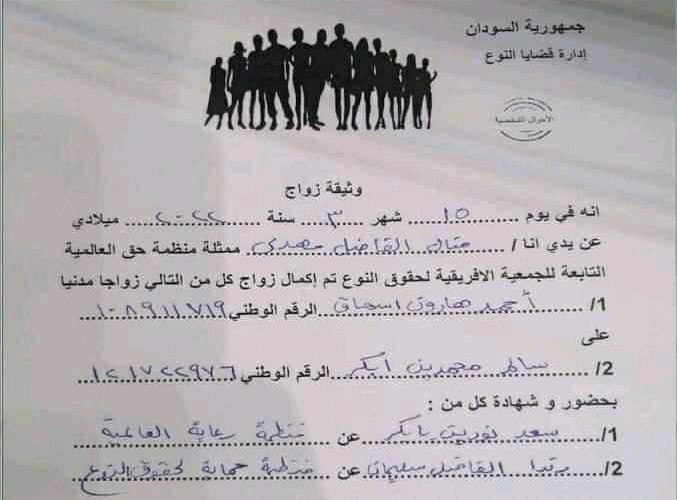 جمهورية السودان
إدارة قضايا النوع
الأحوال الشخصية
وثيقة زواج
انه في يوم ١٥ شهر ٣ سنة ٢٠٢٢ ميلادي
عن يدي انا / الفاضل مهدي ممثلة منظمة حق العالمية
التابعة للجمعية الافريقية لحقوق النوع تم إكمال زواج كل من التالي زواجا مدنيا
1/ أحمد هارون اسحاق الرقم الوطني ١٠٨٩١١٧١٩
على
2/ سالم محمدين ابكر الرقم الوطني ١٢١٧٢٢٩٧٦
بحضور و شهادة كل من :
1/ سعد نورين بابكر عن منظمة رعاية العالمية
2/ الفاضل سليمان عن منظمة حماية لحقوق النوع